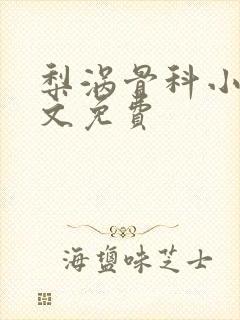 梨涡骨科小
文免費
海鹽味芝士